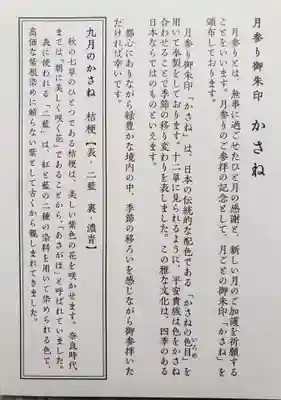 月参り御朱印　かさね
月参りとは、無事に過ごせたひと月の感謝と、新しい月のご加護を祈願する
ことをいいます。月参りのご参拝の記念として、月ごとの御朱印「かさね」を
頒布しております。
月参り御朱印「かさね」は、日本の伝統的な配色である「かさねの色目」を
いろめ
用いて奉製をしております。十二単に見られるように、平安貴族は色をかさね
合わせることで季節の移り変わりを表しました。この雅な文化は、四季のある
日本ならではのものといえます。
都心にありながら緑豊かな境内の中、季節の移ろいを感じながら御参拝いた
だければ幸いです。
九月のかさね　桔梗【表・二藍　裏・濃青】
秋の七草のひとつである桔梗は、美しい紫色の花を咲かせます。奈良時代
までは「朝に美しく咲く花」であることから、「あさがほ」と呼ばれていました。
表に使われる「二藍」は、紅と藍の二種の染料を用いて染められる色で、
高価な紫根染めに頼らない紫として古くから親しまれてきました。